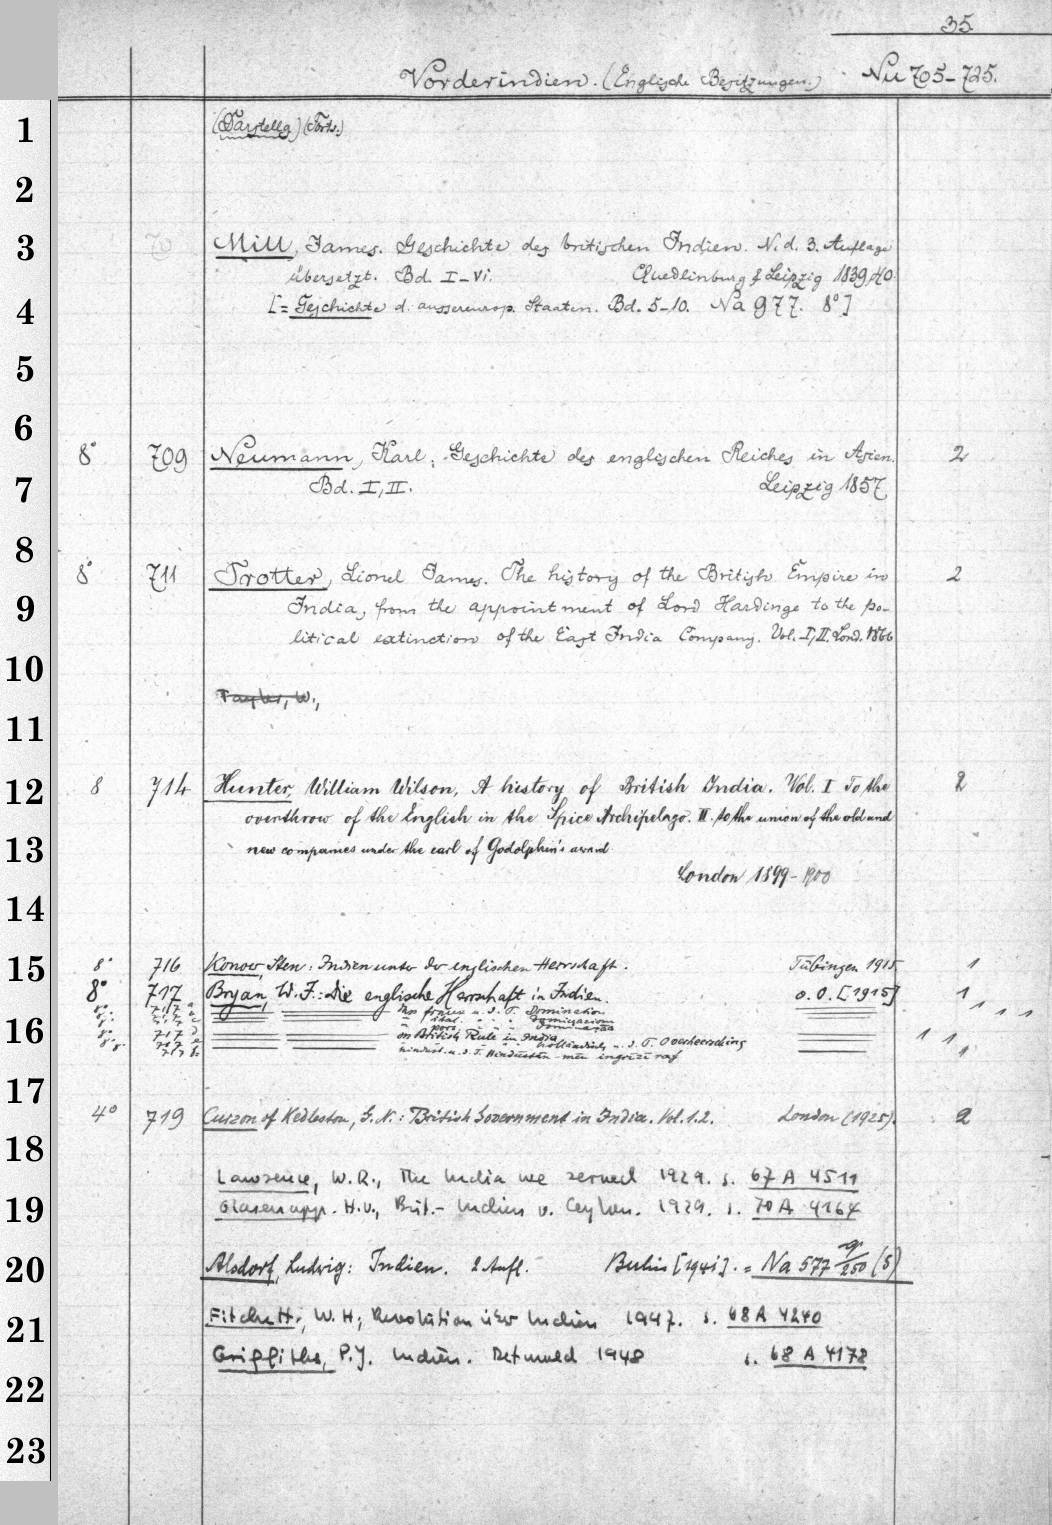 35
Vorderindien. (Englische Besitzungen.) Nu 705-725.
1
(Darstellg) (Forts.)
2
3
Mill, James. Geschichte des britischen Indien. N. d. 3. Auflage
übersetzt. Bd. I-VI. Quedlinburg & Leipzig 1839/40.
4
[= Geschichte d. aussereurop. Staaten. Bd. 5-10. Na 977. 8°]
5
6
8° 709 Neumann, Karl, Geschichte des englischen Reiches in Asien. 2
7
Bd. I, II. Leipzig 1857
8
8° 711 Trotter, Lionel James. The history of the British Empire in 2
9
India, from the appointment of Lord Hardinge to the po-
litical extinction of the East India Company. Vol. I, II. Lond. 1866
10
Tayler, W.,
11
12
8 714 Hunter, William Wilson, A history of British India. Vol. I To the 2
overthrow of the English in the Spice Archipelago. II. to the union of the old and
13
new companies under the earl of Godolphin's award
London 1899-1900
14
15
8° 716 Konow, Sten: Indien unter der englischen Herrschaft. Tübingen 1915 1
8° 717 Bryan, W. J.: Die englische Herrschaft in Indien. o. O. [1915] 1
16
Domination
on British Rule in India
holländisch u. d. T. Overheersching
17
4° 719 Curzon of Kedleston, G. N.: British Government in India. Vol. 1.2. London (1925). 2
18
Lawrence, W. R., The India we served 1929. s. 67 A 4511
19
Glasenapp. H. v., Brit.- Indien u. Ceylon. 1929. s. 70 A 4164
20
Alsdorf, Ludwig: Indien. 2 Aufl. Berlin [1941]. = Na 577 250 (5)
21
Fitchett, W. H; Revolution über Indien 1947. s. 68 A 4240
Griffiths, P. J. Indien. 1948 s. 68 A 4178
22
23